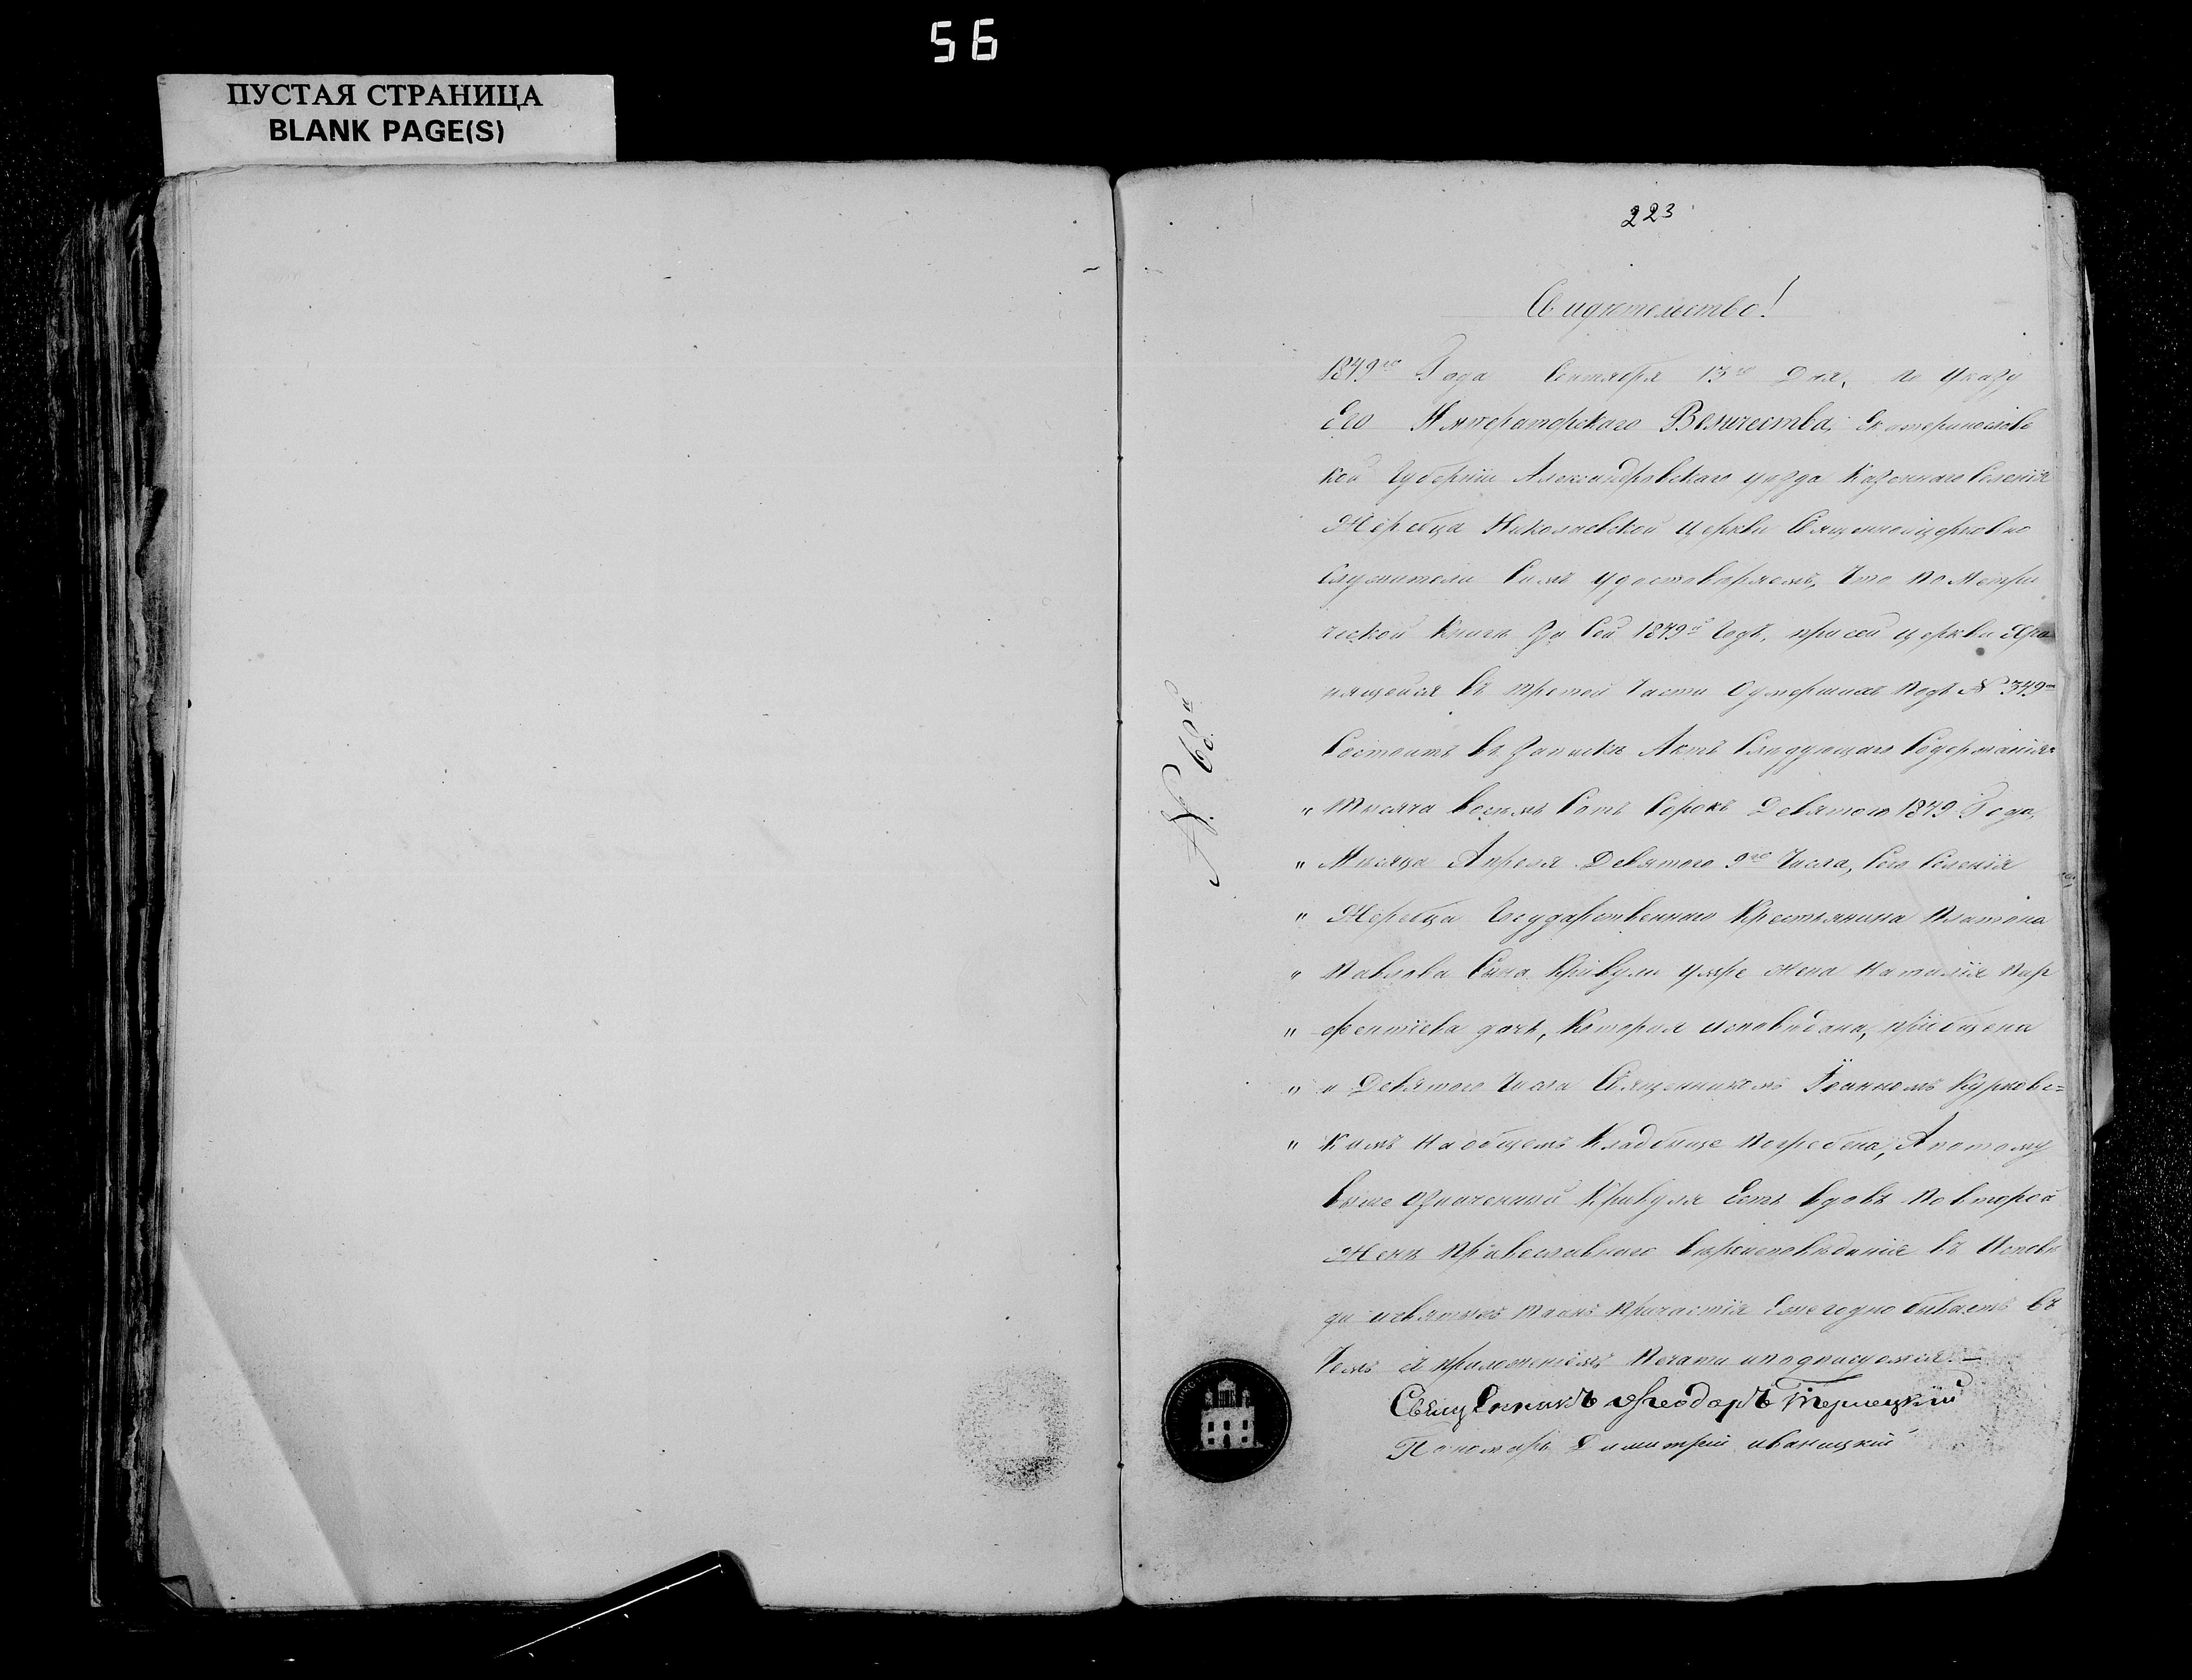 56
ПУСТАЯ СТРАНИЦА
BLANK PAGE(S)
223
Свидѣтельство!
1849го Года Сентября 13го Дня, по Указу
Его Императорскаго Величества, Екатеринославс
кой Губерніи Александровскаго уѣзда Казеннаго Селенія
Жеребца Николаевской Церкви Священноицерковно
служители Симъ удостовѣряемъ, Что по Метри
ческой Книгѣ За Сей 1849й Годъ, при сей церкви Хра
нящейся въ третей Части Оумершихъ подъ № 349м
Состоитъ въ Запискѣ Актъ Слѣдующаго Содержанія:
„ Тысяча Восемь Сотъ Сорокъ Девятого 1849 Года,
„ Мѣсяца Апреля Девятого 9го Числа, Сего Селенія
„ Жеребца Государственнаго Крестьянина Платона
„ Павлова Сына Кривули умре жена Наталія Пар
„ фентіева дочь, Которая исповѣдана, пріобщена
„ и Девятого Числа Священникомъ Іоанномъ Курковс=
„ кимъ на общемъ Кладбище погребена, А потому
выше Означенный Кривуля Есть вдовъ по второй
Женѣ Православнаго вѣроисповѣданія въ Исповѣ
ди исвятыхъ Таинъ Причастія Ежегодно бываетъ въ
Чемъ съ приложеніемъ Печати иподписуемся. —
Священникъ Ѳеодоръ Терлецкій
Пономарь Димитрій иваницкій